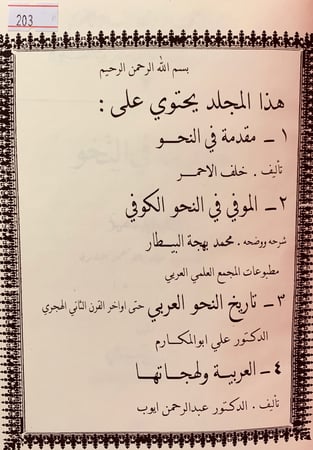 203
بسم الله الرحمن الرحيم
هذا المجلد يحتوي على :
١ــ مقدمة في النحــو
تأليف . خلف الاحمـر
٢ــ الموفي في النحو الكوفي
شرحه ووضحه . محمد بهجة البيـطار
مطبوعات المجمع العلمي العربي
٣ــ تاريخ النحو العربي حتى اواخر القرن الثاني الهجري
الدكتور علي ابوالمكـارم
٤ــ العربيـة ولهجـاتهـا
تأليف . الدكتور عبدالرحمن ايوب